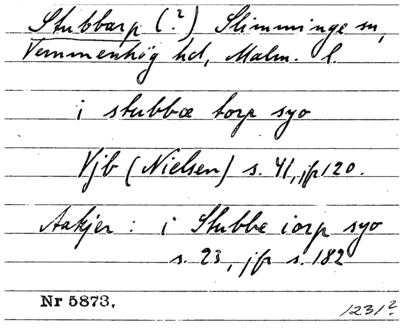 Stubbarp (?) Slimminge sn,
Vemmenhög hd, Malm. l.
i stubbæ torp syo
Vjb (Nielsen) s. 41, jfr 120.
Aakjer: i Stubbe iorp syo
s. 23, jfr s. 182
Nr 5873.
1231?